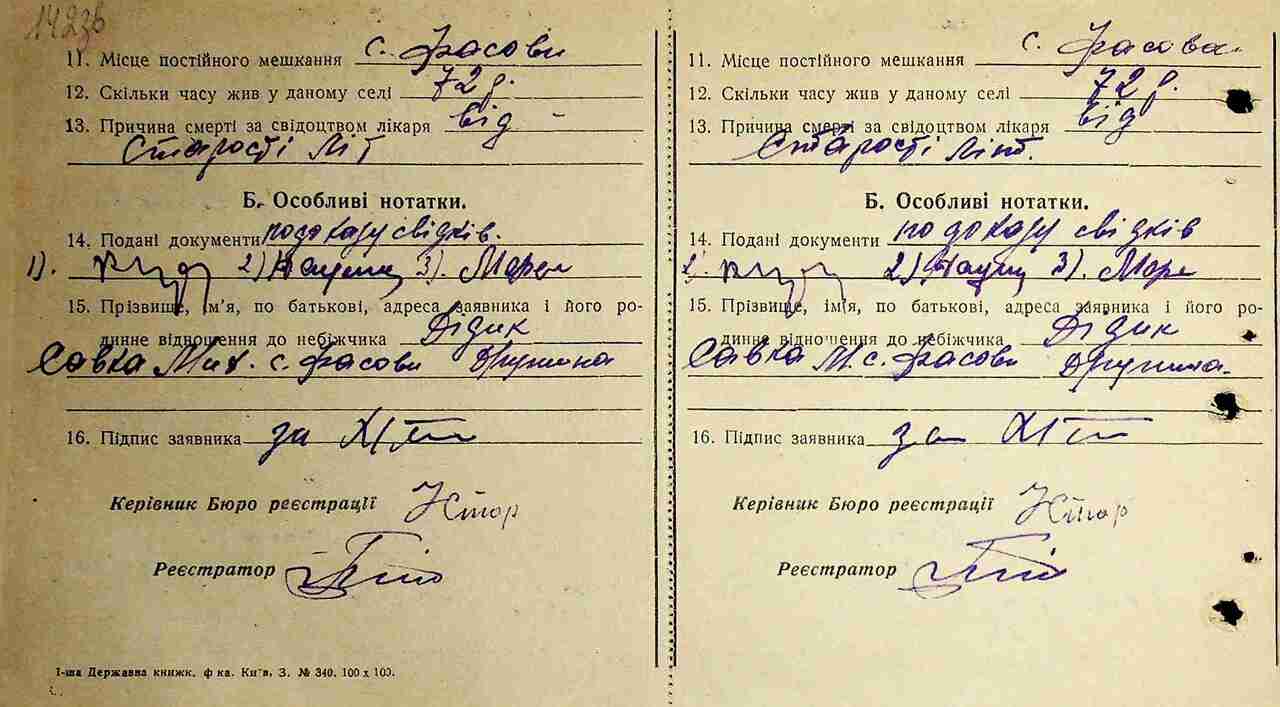 1423б
11. Місце постійного мешкання с. Фасови
12. Скільки часу жив у даному селі 72 р.
13. Причина смерті за свідоцтвом лікаря від
Старості літ
Б. Особливі нотатки.
14. Подані документи по доказу свідків.
1). 2) 3). Маре
15. Прізвище, ім'я, по батькові, адреса заявника і його ро-
динне відношення до небіжчика Дідик
Савка Мих. с. Фасови Дружина
16. Підпис заявника за
Керівник Бюро реєстрації
Реєстратор
1-ша Державна книжк. ф-ка. Київ, З. № 340. 100 x 100.
11. Місце постійного мешкання с. Фасова
12. Скільки часу жив у даному селі 72 р.
13. Причина смерті за свідоцтвом лікаря від
Старості літ.
Б. Особливі нотатки.
14. Подані документи по доказу свідків
2) 3). Маре
15. Прізвище, ім'я, по батькові, адреса заявника і його ро-
динне відношення до небіжчика Дідик
Савка М. с. Фасови Дружина
16. Підпис заявника за
Керівник Бюро реєстрації
Реєстратор